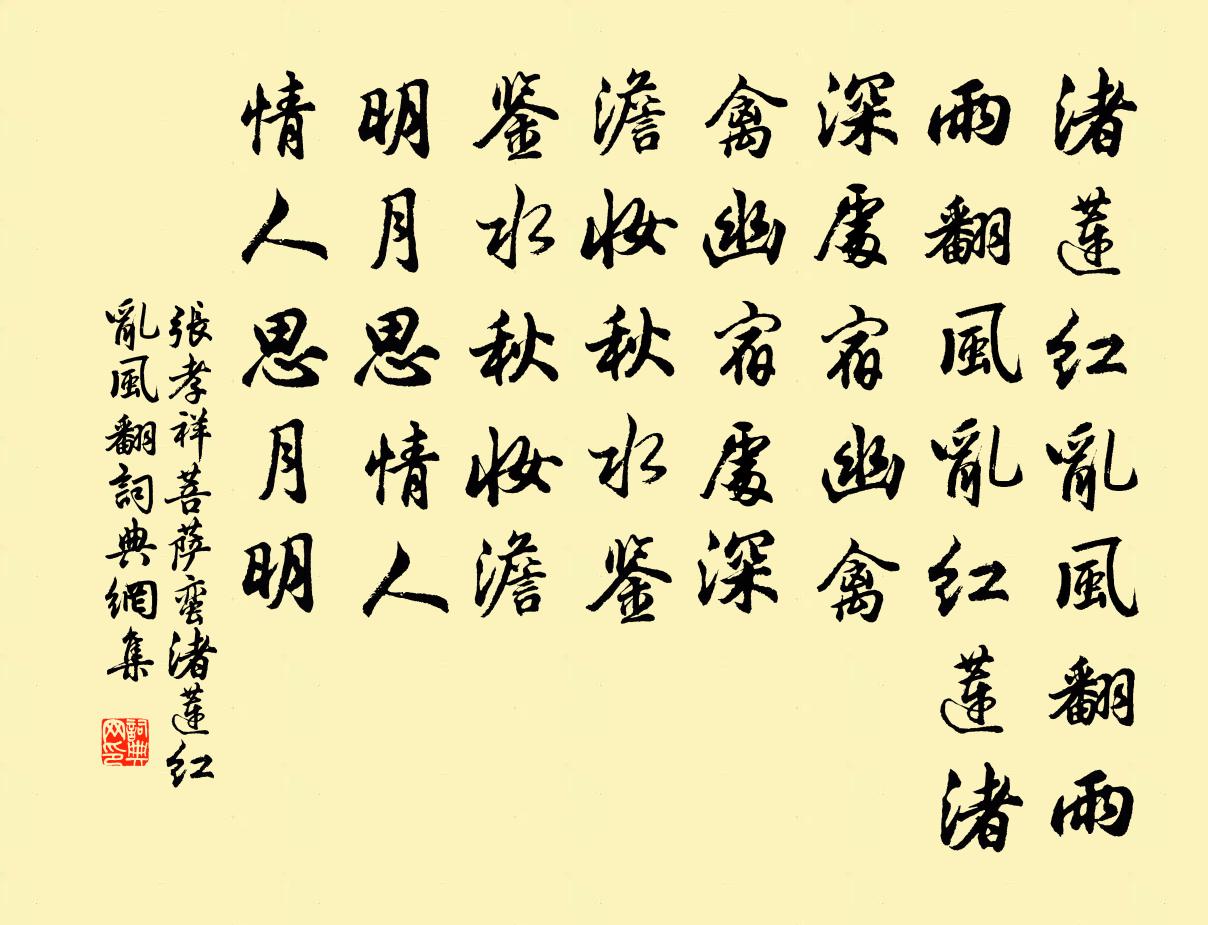 渚蓮红亂風翻雨
雨翻風亂红蓮渚
深處宿幽禽
禽幽宿處深
澹妝秋水鉴
鉴水秋妝澹
明月思情人
情人思月明
張孝祥菩萨蛮渚蓮红
亂風翻詞典網集
詞典网印